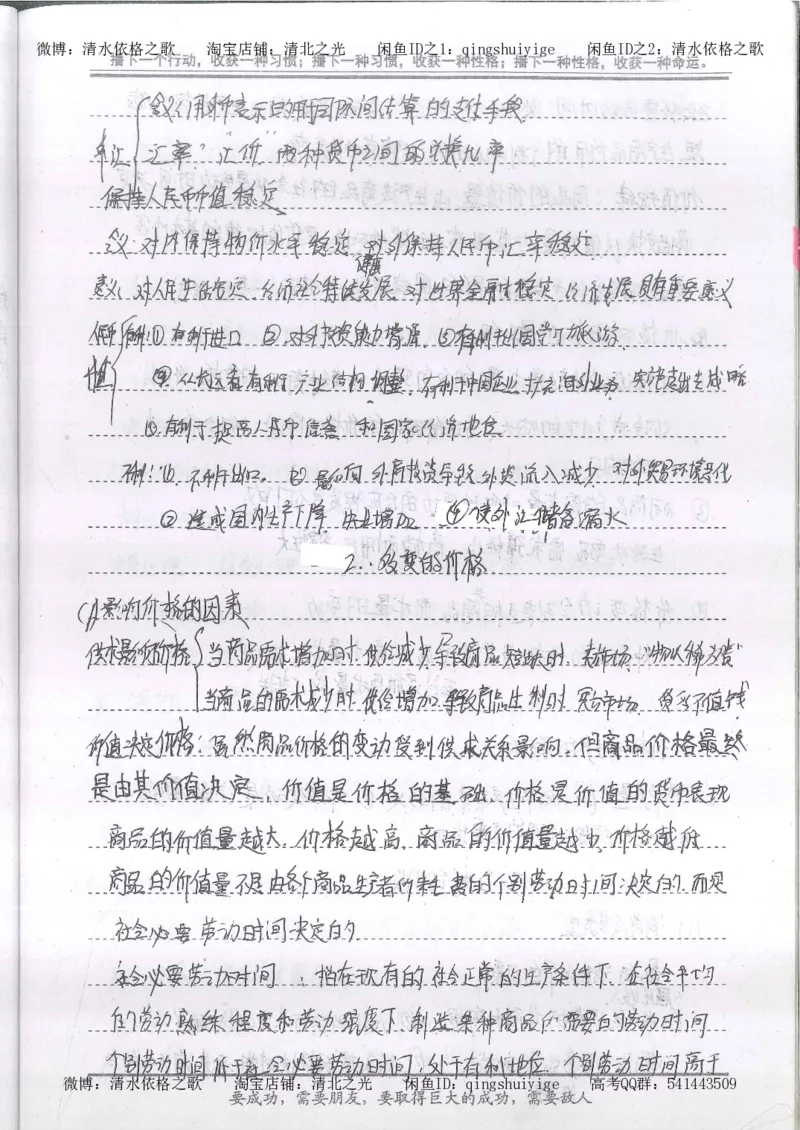 微博：清水依格之歌 淘宝店铺：清北之光 闲鱼ID之1：qingshuiyige 闲鱼ID之2：清水依格之歌
播下一个行动，收获一种习惯；播下一种习惯，收获一种性格；播下一种性格，收获一种命运。
含义：用外币表示的用于国际间结算的支付手段
外汇 汇率"汇价"两种货币之间的兑换比率
保持人民币币值稳定
含义：对内保持物价水平稳定，对外保持人民币汇率稳定
意义：对人民生活安定，经济社会持续发展，对世界金融稳定、经济发展具有重要意义
有利：①有利于进口 ②对外投资能力增强，③有利于出国学习旅游
值 ④从长远看有利于产业结构调整，有利于中国企业扩大海外业务，实施走出去战略
⑤有利于提高人民币信誉和国家经济地位
不利：①不利于出口。②影响外商投资导致外资流入减少，对外贸易环境恶化
③造成国内生产下降，失业增加 ④使外汇储备缩水
2. 多变的价格
(1)影响价格的因素
供求影响价格 当商品需求增加时，供给减少导致商品短缺时，卖方市场"物以稀为贵"
当商品的需求减少时 供给增加导致商品过剩时 买方市场，货多不值钱
价值决定价格：虽然商品价格的变动受到供求关系影响，但商品价格最终
是由其价值决定，价值是价格的基础，价格是价值的货币表现
商品的价值量越大，价格越高，商品的价值量越少，价格越低
商品的价值量不是由各个商品生产者所耗费的个别劳动时间决定的，而是
社会必要劳动时间决定的
社会必要劳动时间：指在现有的社会正常的生产条件下，在社会平均
的劳动熟练程度和劳动强度下制造某种商品所需要的劳动时间
个别劳动时间低于社会必要劳动时间，处于有利地位，个别劳动时间高于
微博：清水依格之歌 淘宝店铺：清北之光 闲鱼ID：qingshuiyige 高考QQ群：541443509
要成功，需要朋友，要取得巨大的成功，需要敌人